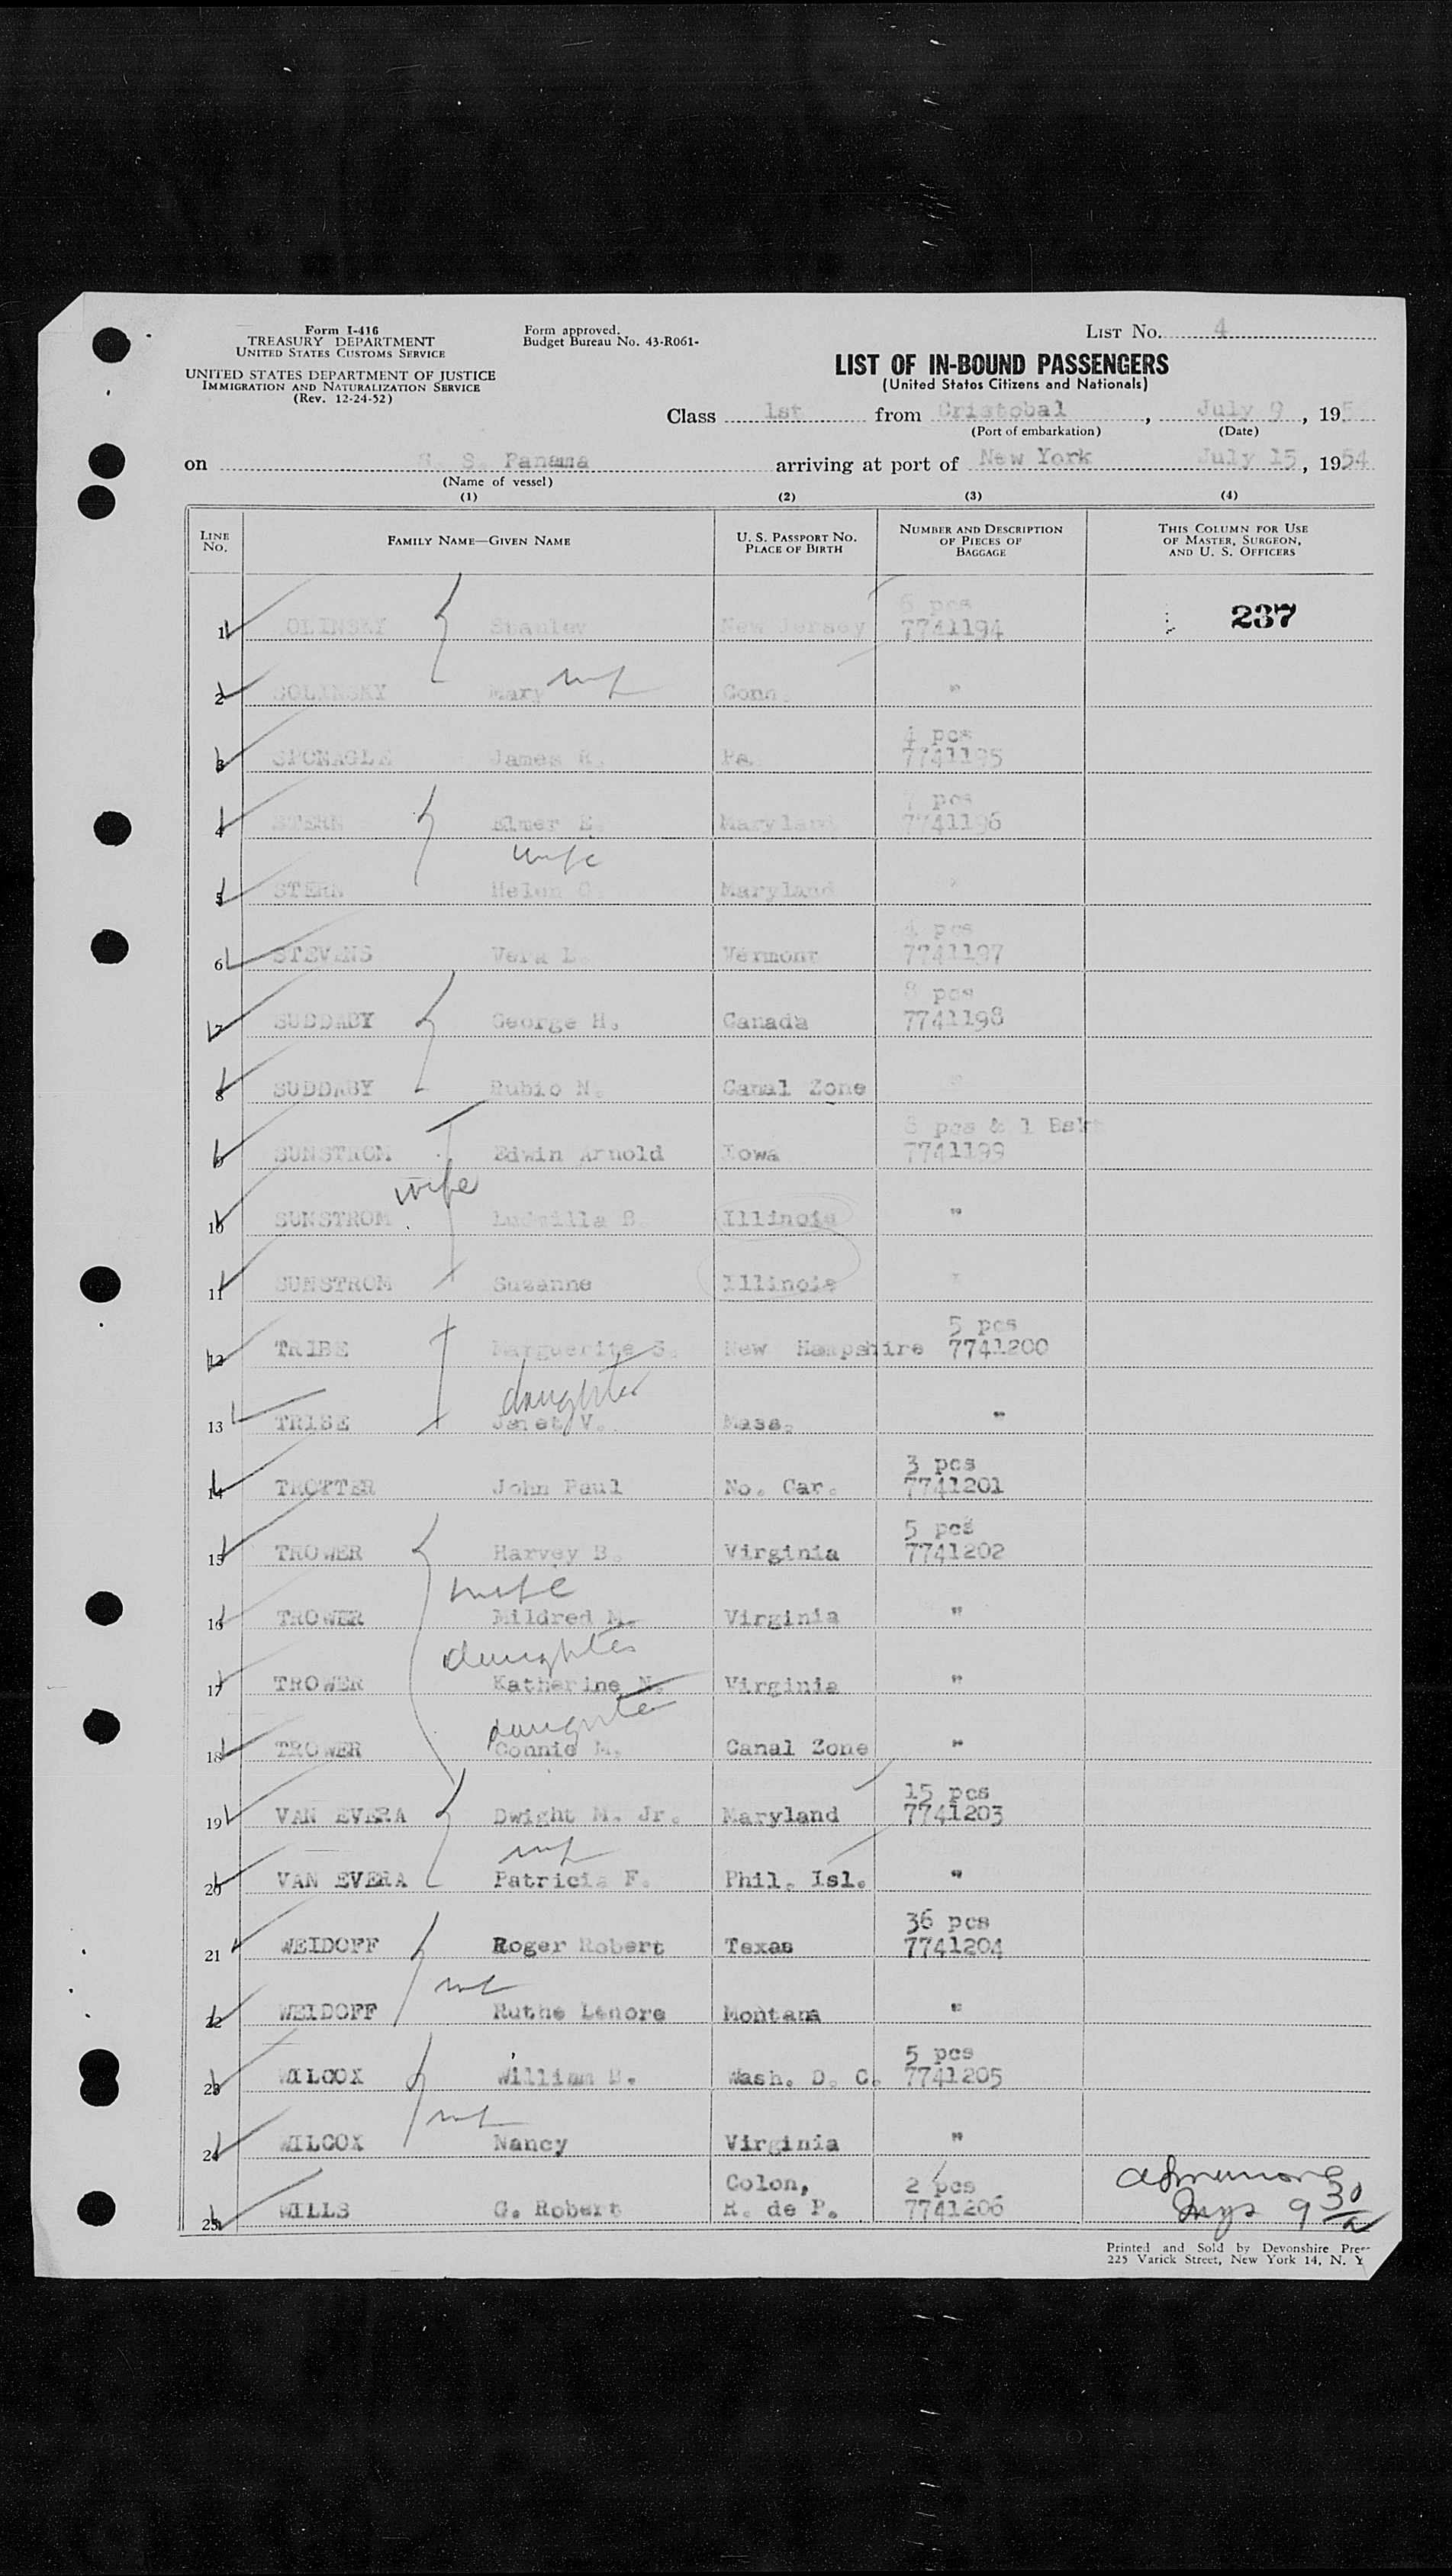 Form I-416
TREASURY DEPARTMENT
UNITED STATES CUSTOMS SERVICE
UNITED STATES DEPARTMENT OF JUSTICE
IMMIGRATION AND NATURALIZATION SERVICE
(Rev. 12-24-52)
Form approved.
Budget Bureau No. 43-R061-
LIST NO. 4
LIST OF IN-BOUND PASSENGERS
(United States Citizens and Nationals)
Class 1st from Cristobal, July 9, 195
(Port of embarkation) (Date)
on S. S. Panama arriving at port of New York July 15, 1954
(Name of vessel)
(1) (2) (3) (4)
LINE NO. FAMILY NAME—GIVEN NAME U. S. PASSPORT NO. PLACE OF BIRTH NUMBER AND DESCRIPTION OF PIECES OF BAGGAGE THIS COLUMN FOR USE OF MASTER, SURGEON, AND U. S. OFFICERS
6 pcs
1 OLINSKY Stanley New Jersey 7741194 237
wf
2 SOLINSKY Mary Conn. "
4 pcs
3 SPONAGLE James R. Pa. 7741195
7 pcs
4 STERN Elmer E. Maryland 7741196
wife
5 STERN Helen G. Maryland "
4 pcs
6 STEVENS Vera L. Vermont 7741197
8 pcs
7 SUDDABY George H. Canada 7741198
8 SUDDABY Rubio N. Canal Zone "
8 pcs & 1 Bskt
9 SUNSTROM Edwin Arnold Iowa 7741199
wife
10 SUNSTROM Ludwilla B. Illinois "
11 SUNSTROM Suzanne Illinois "
5 pcs
12 TRIBE Marguerite S. New Hampshire 7741200
daughter
13 TRIBE Janet V. Mass. "
3 pcs
14 TROTTER John Paul No. Car. 7741201
5 pcs
15 TROWER Harvey B. Virginia 7741202
wife
16 TROWER Mildred M. Virginia "
daughter
17 TROWER Katherine N. Virginia "
daughter
18 TROWER Connie M. Canal Zone "
15 pcs
19 VAN EVERA Dwight M. Jr. Maryland 7741203
wf
20 VAN EVERA Patricia F. Phil. Isl. "
36 pcs
21 WEIDOFF Roger Robert Texas 7741204
wf
22 WEIDOFF Ruthe Lenore Montana "
5 pcs
23 WILCOX William B. Wash. D. C. 7741205
wf
24 WILCOX Nancy Virginia "
Colon, 2 pcs
25 WILLS G. Robert R. de P. 7741206
9 30
Printed and Sold by Devonshire Pres
225 Varick Street, New York 14, N. Y